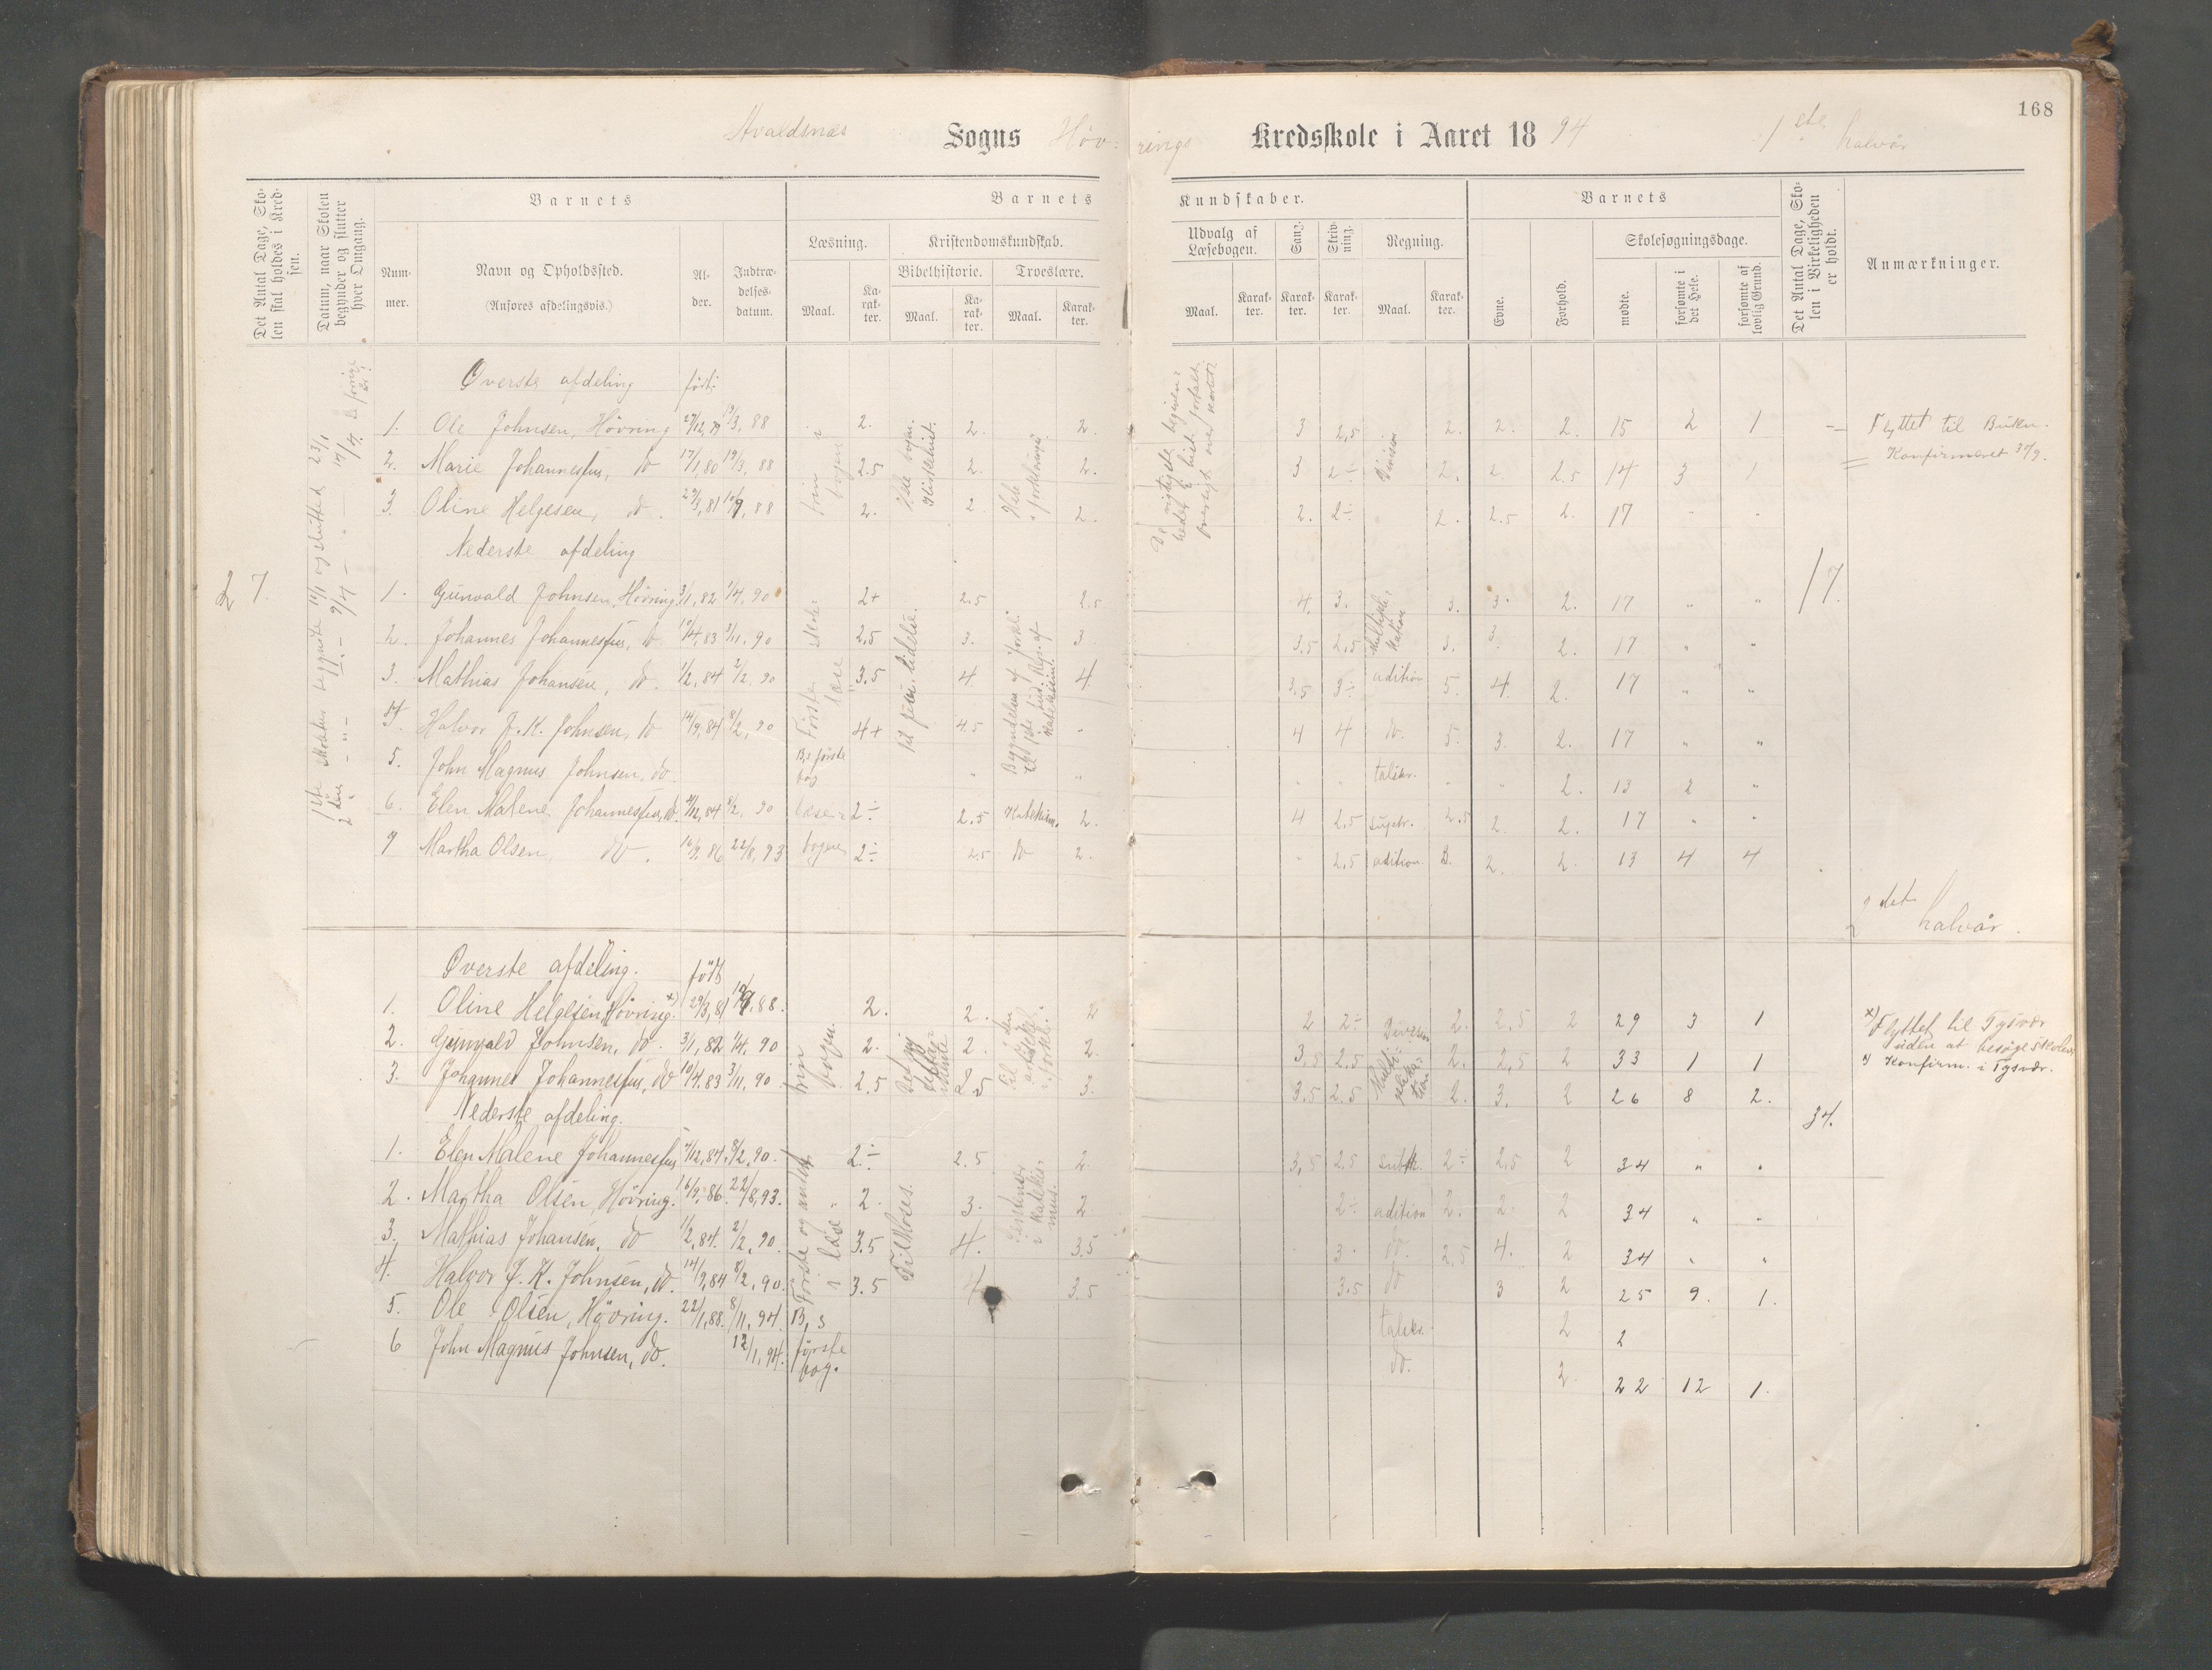 168
Avaldsnæs Sogns Høvrings Kredsskole i Aaret 1894 1ste halvår
Det Antal Dage, Skolen skal holdes i Kredsen.
Datum, naar Skolen begynder og slutter hver Omgang.
Barnets
Nummer.
Navn og Opholdssted.
(Anføres afdelingsvis.)
Alder.
Indtrædelsesdatum.
Barnets Kundskaber.
Læsning.
Maal.
Karakter.
Kristendomskundskab.
Bibelhistorie.
Maal.
Karakter.
Troeslære.
Maal.
Karakter.
Udvalg af Læsebogen.
Maal.
Karakter.
Sang.
Karakter.
Skrivning.
Karakter.
Regning.
Maal.
Karakter.
Barnets
Evne.
Forhold.
Skolesøgningsdage.
mødte.
forsømte i det Hele.
forsømte af lovlig Grund.
Det Antal Dage, Skolen i Virkeligheden er holdt.
Anmærkninger.
Øverste afdeling født
1. Ole Johnsen, Hövring 27/12,79 19/3,88 2. 2. 2. 3 2,5 2. 2. 2. 15 2 1 Flyttet til Buken.
2. Marie Johannesfus, do 17/1,80 19/3,88 2.5 2. 2. 3 2÷ Division 2. 2. 2.5 14 3 1 Konfirmeret 30/9.
3. Oline Helgesen, do. 29/3,81 10/9,88 2. 2. 2. 2. 2÷ 2. 2.5 2. 17 " "
Nederste afdeling
27. 17.
1. Gunvald Johnsen, Hövring 3/1,82 1/4,90 2+ 2.5 2.5 4. 3. 3. 3. 2. 17 " "
2. Johannes Johannesfus, do 10/4,83 3/11,90 2,5 3. 3 3.5 2.5 3. 3. 2. 17 " "
3. Mathias Johansen, do. 1/2,84 2/2,90 3.5 4 4 3.5 3÷ adition 5. 4. 2. 17 " "
4. Halvor J. K. Johnsen, do 14/9,84 8/2,90 4+ 4.5 " 4 4 do. 5. 3. 2. 17 " "
5. John Magnus Johnsen, do. B,s første bog " " " " talskr. " " 2. 13 2 "
6. Elen Malene Johannesfus, do. 4/12,84 8/2,90 2÷ 2.5 Katekism. 2. 4 2.5 subtr. 2.5 2. 2. 17 " "
9 Martha Olsen, do. 16/9,86 22/8,93 2÷ 2.5 do 2. " 2.5 adition 3. 2. 2. 13 4 4
2det halvår.
Øverste afdeling. født
1. Oline Helgesen, Hövring. x) 29/3,81 10/9,88. 2. 2. 2 2 2÷ Division 2. 2,5 2 29 3 1 x) Flyttet til Tysvær
2. Gunvald Johnsen, do. 3/1,82 1/4,90 2. 2. 2. 3,5 2.5 2. 2,5 2 33 1 1 uden at besøge skolen
3. Johannes Johannesfus, do 10/4.83 3/11,90 2.5 2.5 3. 3.5 2.5 2. 3. 2 26 8 2. x) Konfirm. i Tysvær.
Nederste afdeling.
34.
1. Elen Malene Johannesfus 4/12,84. 8/2,90. 2÷ 2.5 2. 3,5 2.5 subtr. 2÷ 2,5 2 34 " "
2. Martha Olsen, Hövring. 16/9,86. 22/8,93. 2. 3. 2 2÷ adition 2. 2. 2 34 " "
3. Mathias Johansen, do 1/2,84. 2/2,90. 3.5 4. 3.5 3. do. 2,5 4. 2 34 " "
4. Halvor J. K. Johnsen, do. 14/9,84 8/2,90. 3.5 4 3.5 3.5 do 3 2 25 9. 1.
5. Ole Olsen, Hövring. 22/1,88. 8/11,94. B,s talskr. 2 2
6 John Magnus Johnsen, do. 12/1,94. første bog. do. 2. 22 12 1.